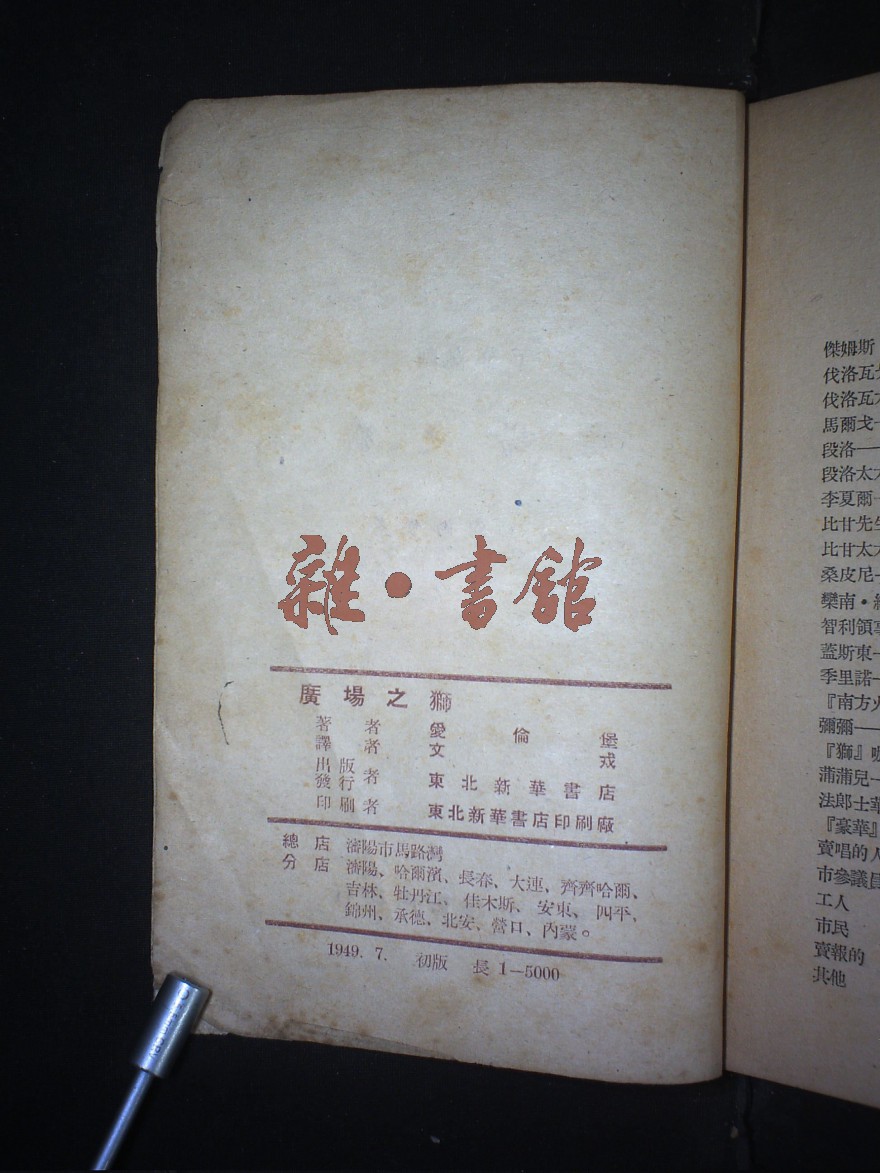 雜·書舘
廣場之獅
著者 愛倫堡
譯者 文戎
出版
發行者 東北新華書店
印刷者 東北新華書店印刷廠
總店 瀋陽市馬路灣
分店 瀋陽、哈爾濱、長春、大連、齊齊哈爾、
吉林、牡丹江、佳木斯、安東、四平、
錦州、承德、北安、營口、內蒙。
1949.7. 初版 長1—5000
傑姆斯
伐洛瓦
伐洛瓦
馬爾戈
段洛——
段洛太
李夏爾
比甘先生
比甘太
桑皮尼
欒南·
智利領
蓋斯東
季里諾
『南方
彌彌——
『獅』
蒲蒲兒
法郎士
『豪華』
賣唱的人
市參議員
工人
市民
賣報的
其他